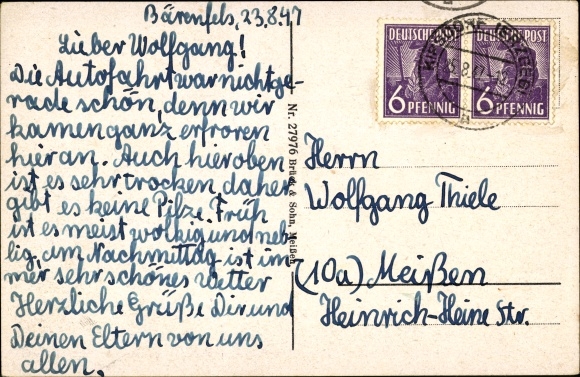 Bärenfels, 23.8.47
Lieber Wolfgang!
Die Autofahrt war nicht ge-
rade schön, denn wir
kamen ganz erfroren
hier an. Auch hier oben
ist es sehr trocken, daher
gibt es keine Pilze. Früh
ist es meist wolkig und neb-
lig, am Nachmittag ist im
mer sehr schönes Wetter
Herzliche Grüße Dir und
Deinen Eltern von uns
allen.
Nr. 27976 Brück & Sohn, Meißen
DEUTSCHE
6 PFENNIG
POST
6 PFENNIG
Herrn
Wolfgang Thiele
(10a) Meißen
Heinrich-Heine Str.